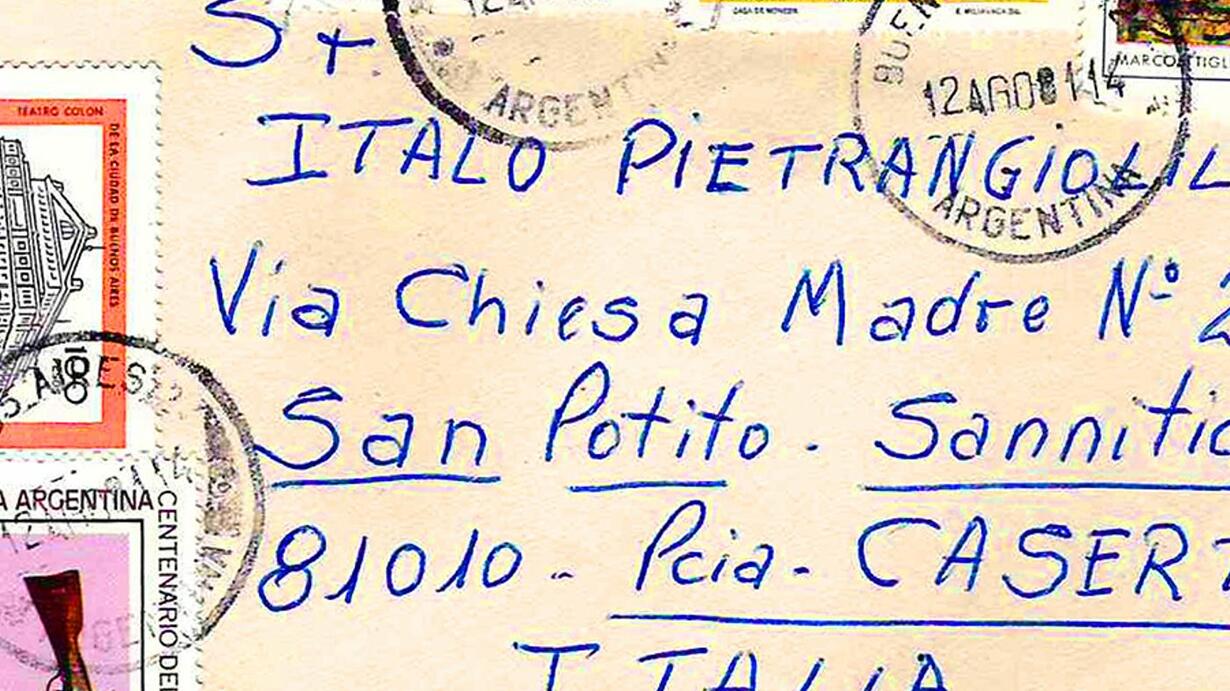 Sr.
ARGENTINA
12AGO81 14
ARGENTINA
MARCO
CASA DE MONEDA
TEATRO COLON
DE LA CIUDAD DE BUENOS AIRES
ITALO PIETRANGIOLIL
Via Chiesa Madre Nº 2
San Potito - Sannitic
81010 - Pcia - CASERT
ITALIA
ARGENTINA
CENTENARIO DE